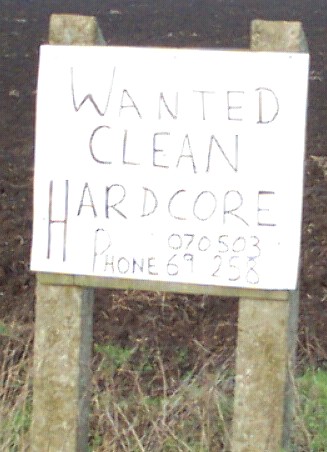 WANTED
CLEAN
HARDCORE
PHONE 070503
69 258